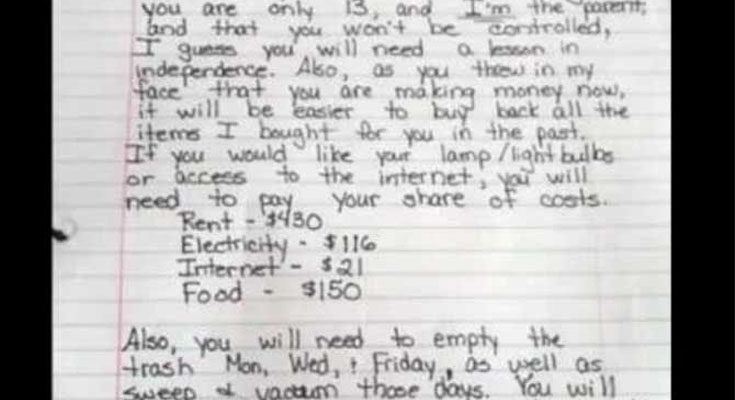 you are only 13, and I'm the parent,
and that you won't be controlled,
I guess you will need a lesson in
independence. Also, as you threw in my
face that you are making money now,
it will be easier to buy back all the
items I bought for you in the past.
If you would like your lamp/lightbulbs
or access to the internet, you will
need to pay your share of costs.
Rent - $430
Electricity - $116
Internet - $21
Food - $150
Also, you will need to empty the
trash Mon, Wed, & Friday, as well as
sweep & vacuum those days. You will